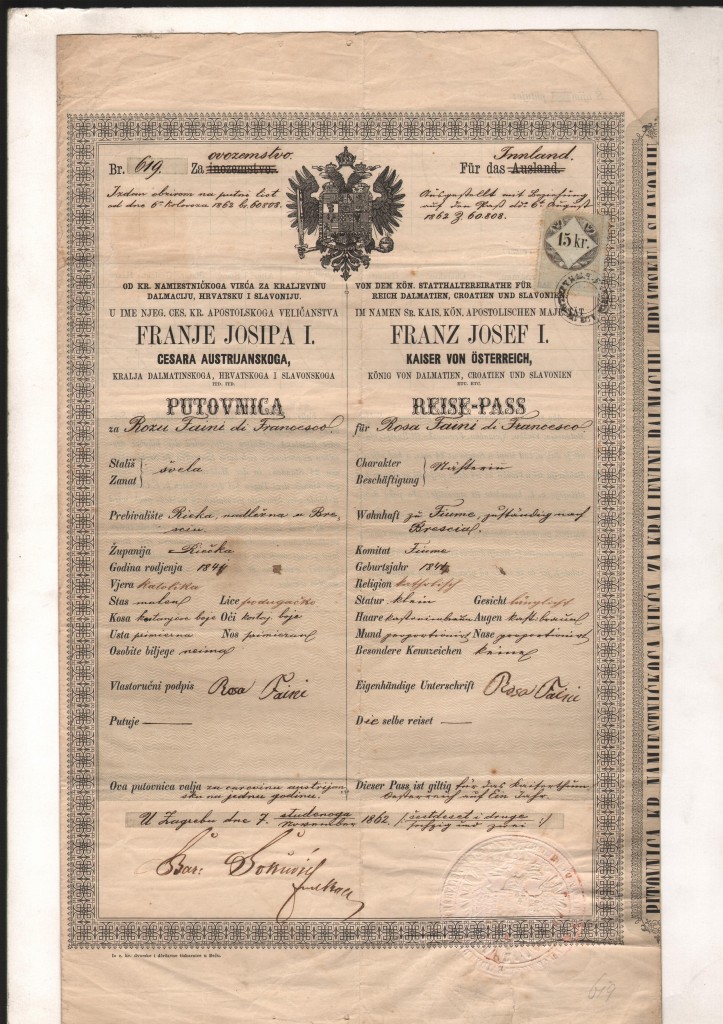 Br. 619. Za inozemstvo. ovozemstvo.
Izdan obzirom na putni list
od dne 6. Kolovoza 1862 br. 60808.
OD KR. NAMIESTNIČKOGA VIEĆA ZA KRALJEVINU
DALMACIJU, HRVATSKU I SLAVONIJU.
U IME NJEG. CES. KR. APOSTOLSKOGA VELIČANSTVA
FRANJE JOSIPA I.
CESARA AUSTRIJANSKOGA,
KRALJA DALMATINSKOGA, HRVATSKOGA I SLAVONSKOGA
ITD. ITD.
PUTOVNICA
za Rozu Faini di Francesco
Stališ
Zanat
švela
Prebivalište Rieka, nadležna u Bre-
sciu.
Županija Riečka
Godina rodjenja 184
Vjera katolika
Stas malen Lice podugačko
Kosa kestenjeve boje Oči kestenj. boje
Usta primierna Nos primieran
Osobite biljege neima
Vlastoručni podpis Rosa Faini
Putuje —
Ova putovnica valja za carevinu austrijan-
sku na jednu godinu.
Für das Ausland. Innland.
Ausgestellt mit Beziehung
auf den Paß ddo 6t August
1862 Z 60.808.
15 kr.
VON DEM KÖN. STATTHALTEREIRATHE FÜR
REICH DALMATIEN, CROATIEN UND SLAVONIEN
IM NAMEN SR. KAIS. KÖN. APOSTOLISCHEN MAJESTÄT
FRANZ JOSEF I.
KAISER VON ÖSTERREICH,
KÖNIG VON DALMATIEN, CROATIEN UND SLAVONIEN
ETC. ETC.
REISE-PASS
für Rosa Faini di Francesco
Charakter
Beschäftigung
Nähterin
Wohnhaft zu Fiume, zuständig nach
Brescia.
Komitat Fiume
Geburtsjahr 184
Religion katholisch
Statur klein Gesicht länglich
Haare kastanienbraun Augen kast. braun
Mund proportionirt Nase proportionirt
Besondere Kennzeichen keine
Eigenhändige Unterschrift Rosa Faini
Die selbe reiset —
Dieser Pass ist giltig für das Kaiserthum
Oesterreich auf Ein Jahr.
U Zagrebu dne 7. studenoga
November 1862. /: šestdeset i druge
sechzig und zwei :/
Bar: Šokčević
Iz c. kr. dvorske i državne tiskarnice u Beču.
619
PUTOVNICA KR. NAMIESTNIČKOGA VIEĆA ZA KRALJEVINU DALMACIJU, HRVATSKU I SLAVONIJU